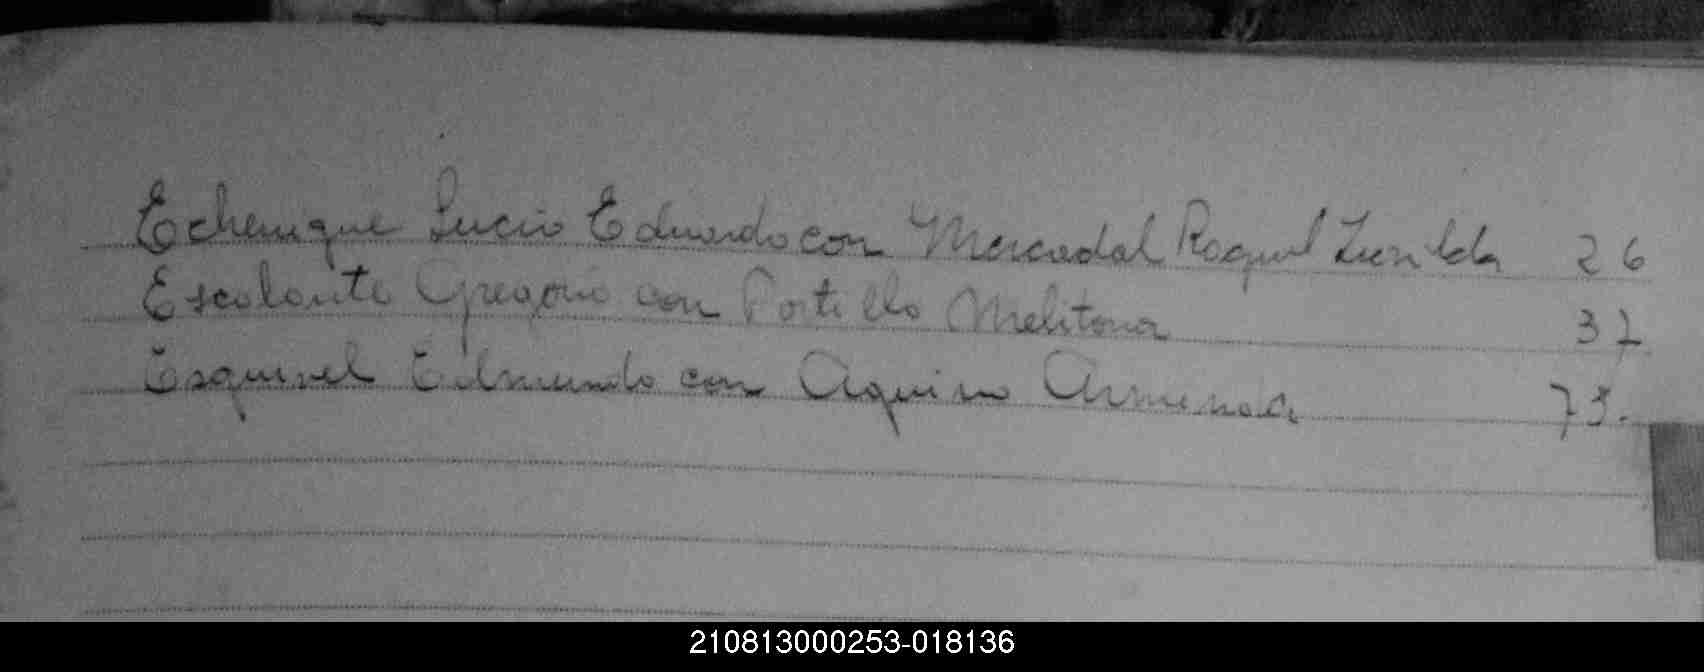 Echenique Lucio Eduardo con Mercadal Raquel 26
Escalante Gregorio con Portillo Melitona 37
Esquivel Edmundo con Aquino 75.
210813000253-018136